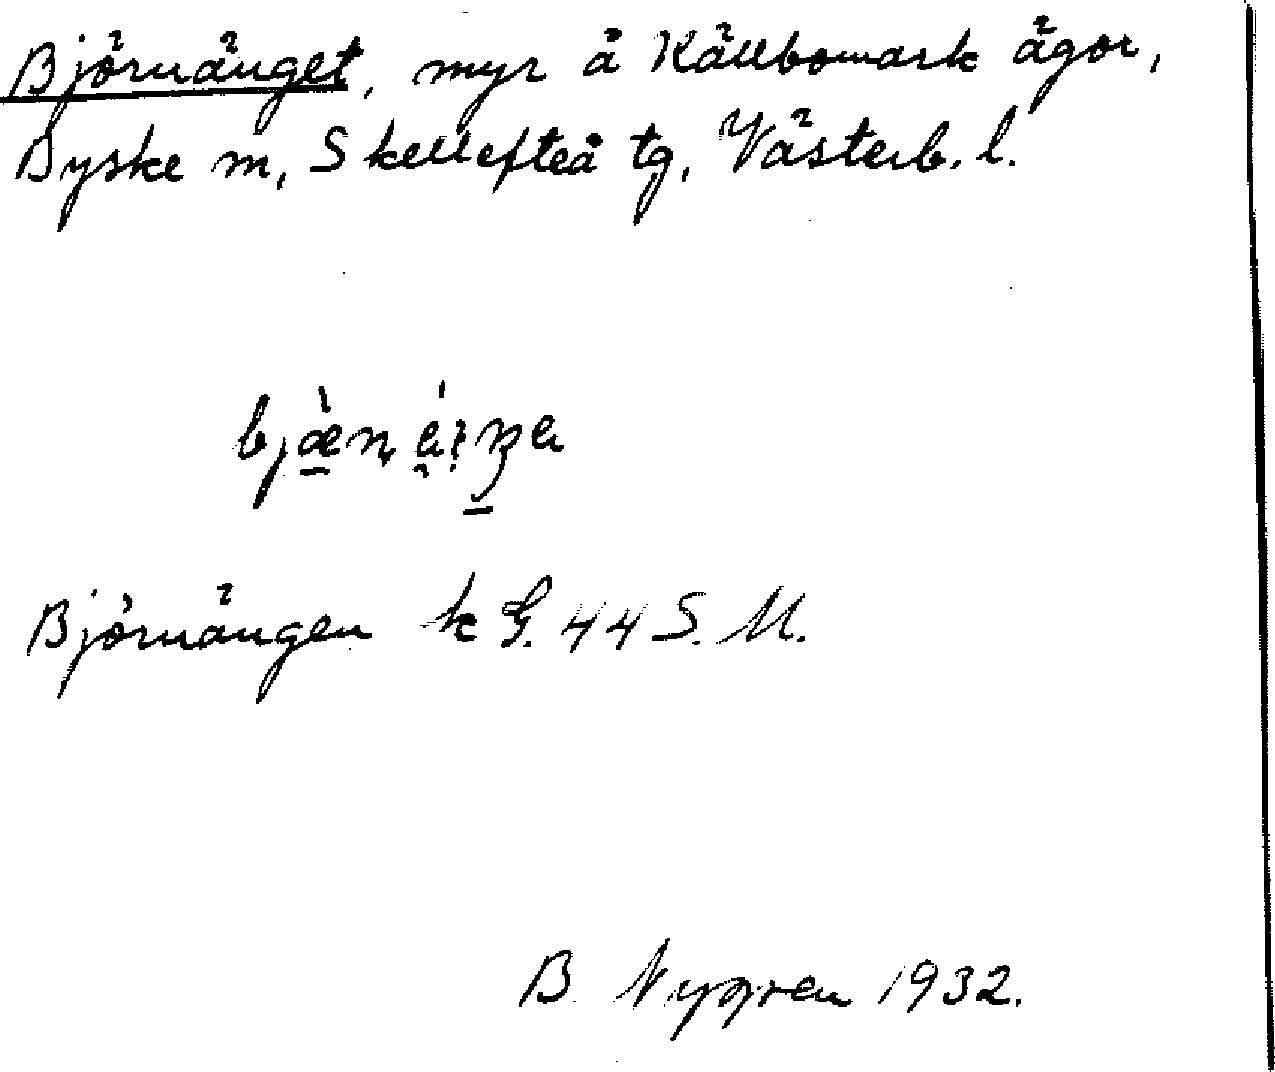 Björnänget, myr å Källbomark ägor,
Byske m, Skellefteå tg, Västerb. l.
Björnängen k G. 44 S. M.
B Nygren 1932.